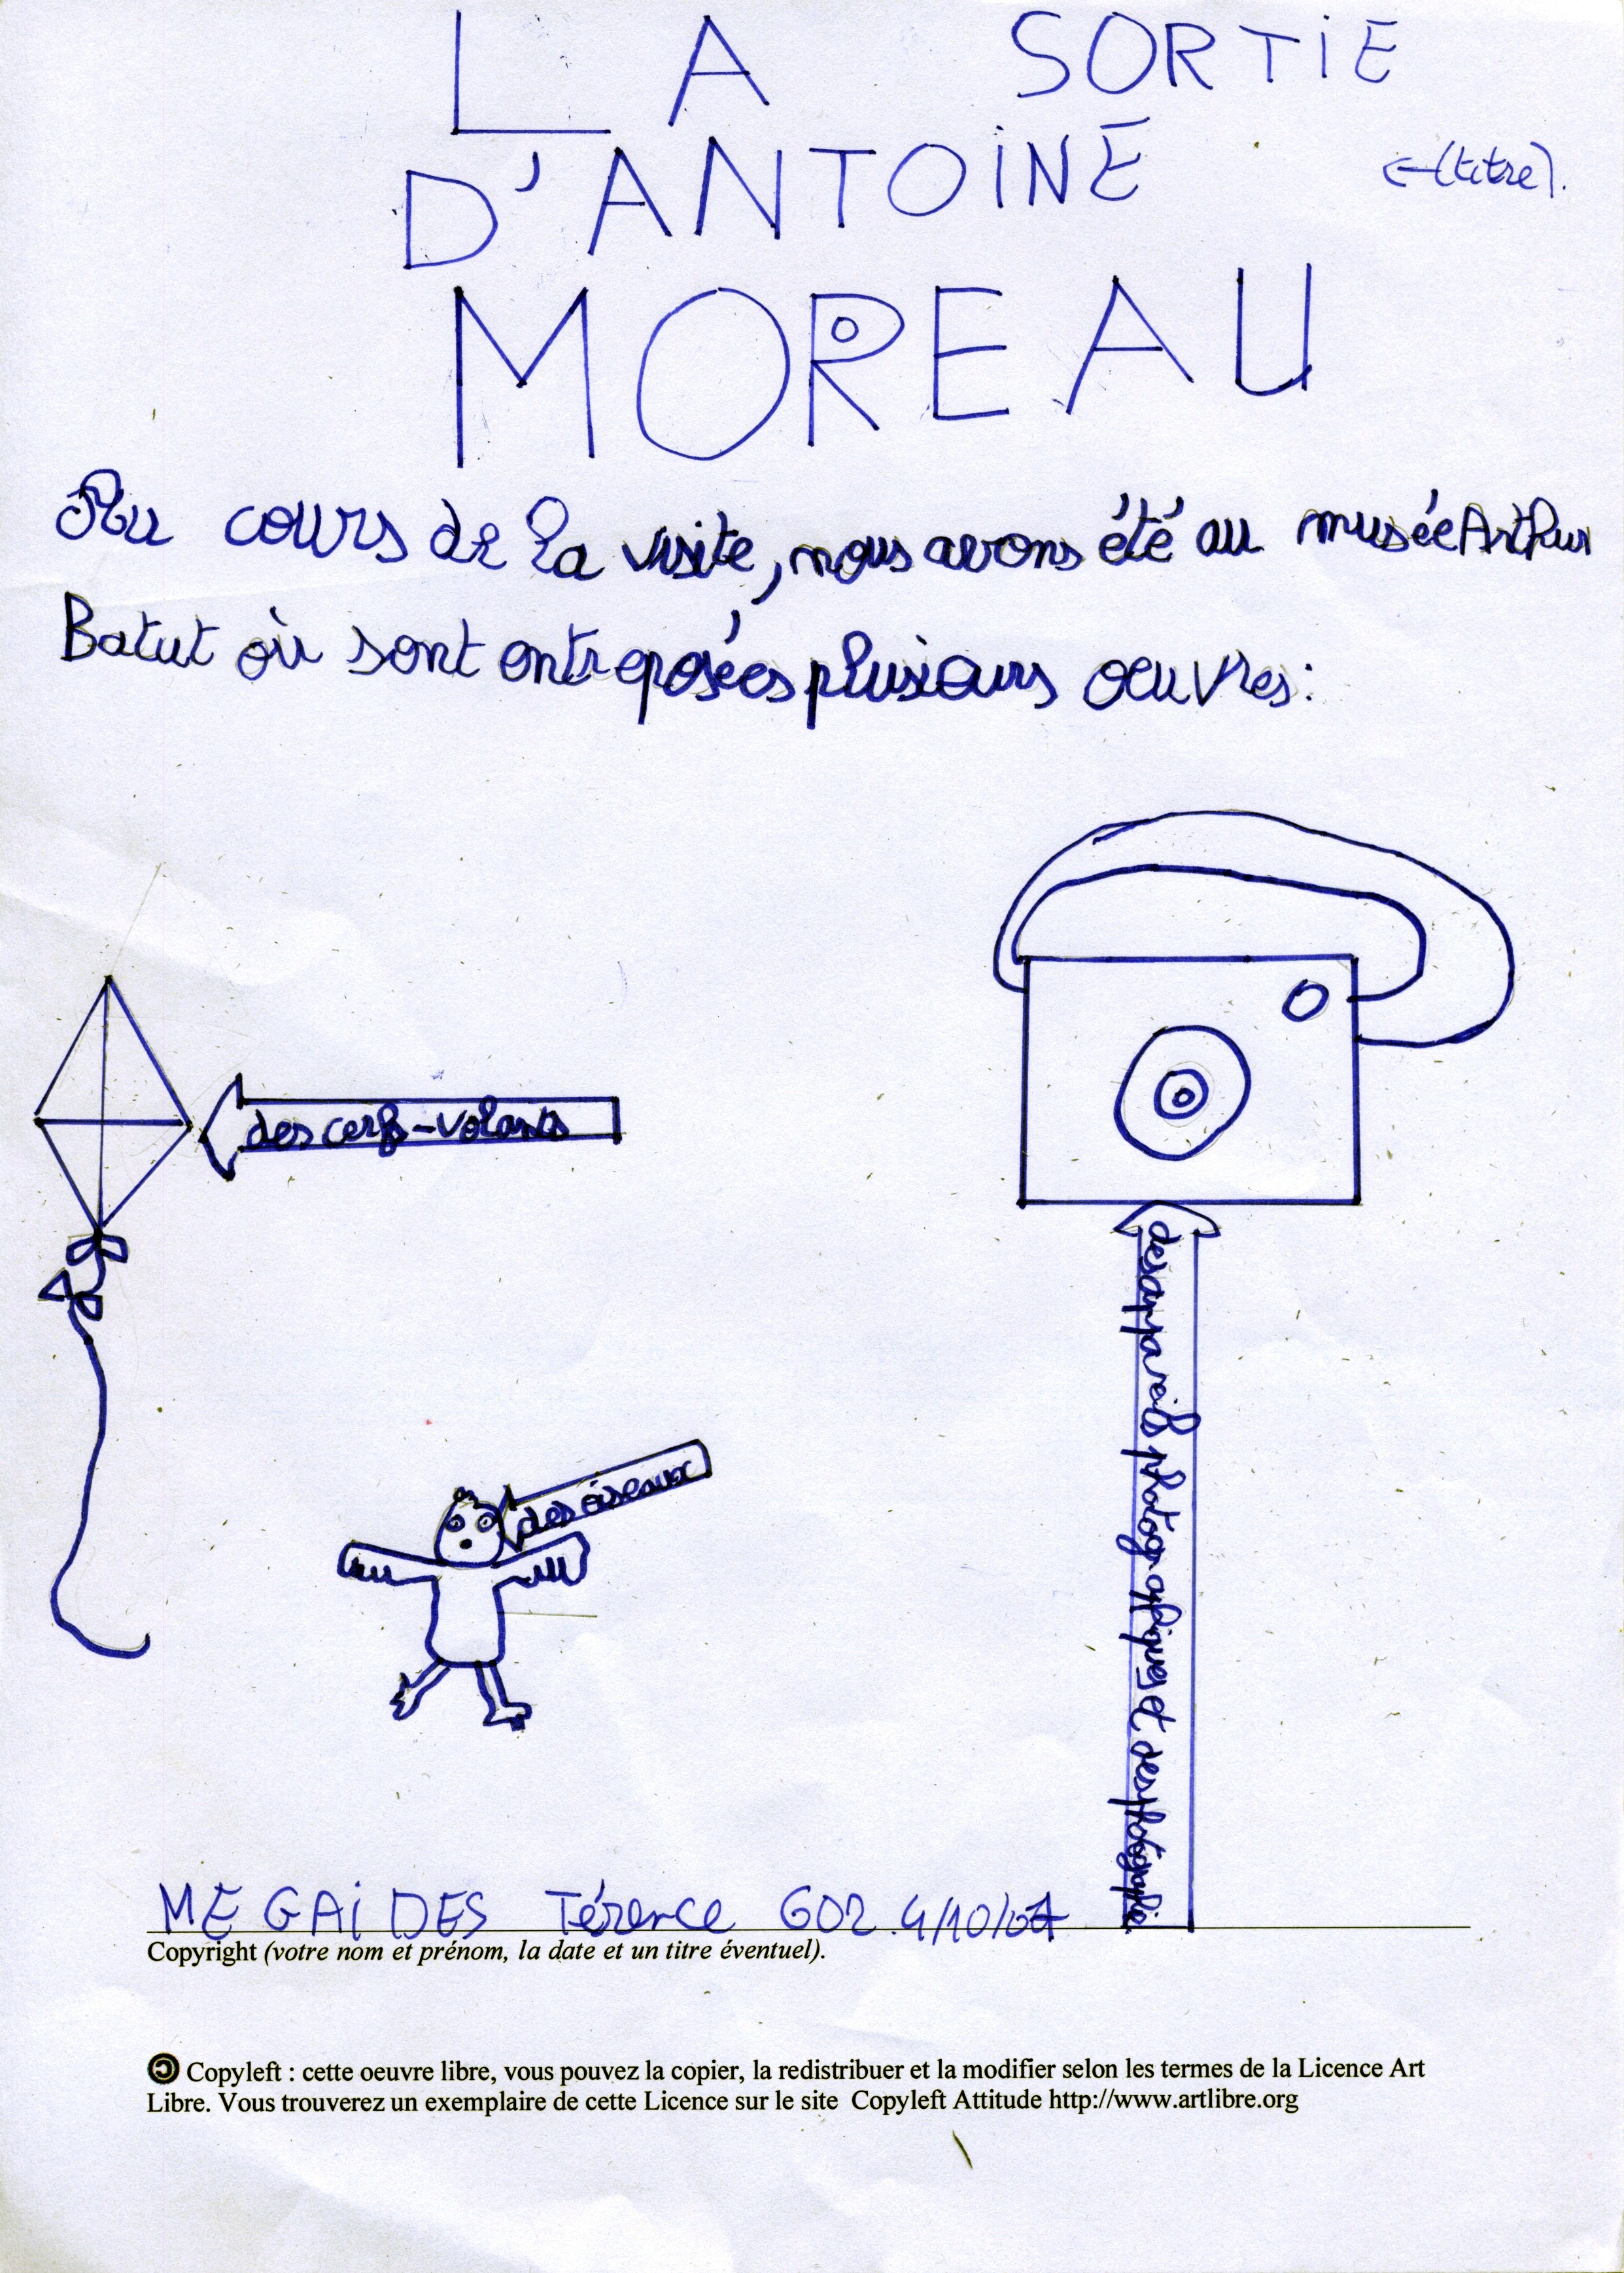 LA SORTiE
D'ANTOiNE
←(titre).
MOREAU
Au cours de la visite, nous avons été au musée Arthur
Batut où sont entreposées plusieurs oeuvres:
des cerfs-volants
des oiseaux
des appareils photographiques et des photographies
MEGAiDES Térence 602 4/10/07
Copyright (votre nom et prénom, la date et un titre éventuel).
Copyleft : cette oeuvre libre, vous pouvez la copier, la redistribuer et la modifier selon les termes de la Licence Art
Libre. Vous trouverez un exemplaire de cette Licence sur le site Copyleft Attitude http://www.artlibre.org